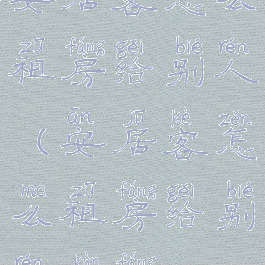 安居客怎么
zū fáng gěi bié rén
租房给别人
ān jū kè zěn
（安居客怎
me zū fáng gěi bié
么租房给别
rén